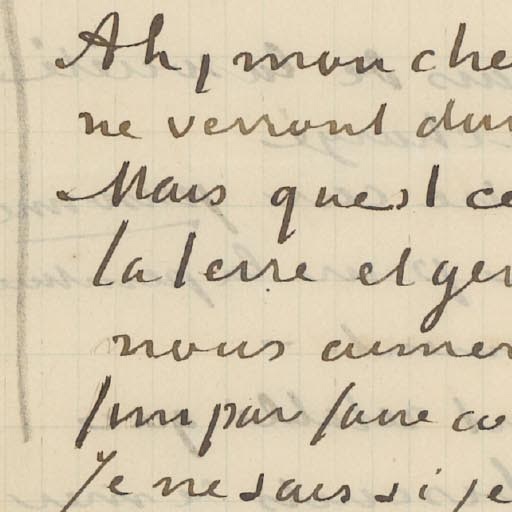 Ah, mon che
ne verront dur
Mais quest ce
la terre et ger
nous aimer
finir par faire co
Je ne sais si je